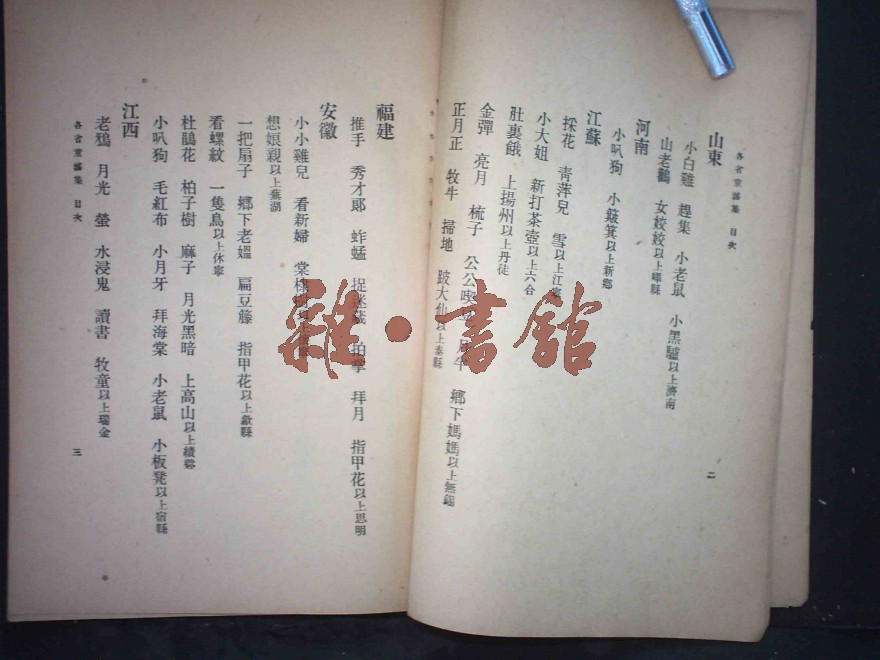 各省童謠集 目次
二
山東
小白雞 趕集 小老鼠 小黑驢以上濟南
山老鸛 女姣姣以上嶧縣
河南
小叭狗 小簸箕以上新鄉
江蘇
採花 青萍兒 雪以上江寧
小大姐 新打茶壺以上六合
肚裏餓 上揚州以上丹徒
金彈 亮月 梳子 公公 鄉下媽媽以上無錫
正月正 牧牛 掃地 跛大仙以上泰縣
福建
推手 秀才郎 蚱蜢 捉迷藏 拍掌 拜月 指甲花以上思明
安徽
小小雞兒 看新婦 棠棣樹
想娘親以上蕪湖
一把扇子 鄉下老媼 扁豆籐 指甲花以上歙縣
看螺紋 一隻鳥以上休寧
杜鵑花 柏子樹 麻子 月光黑暗 上高山以上績谿
小叭狗 毛紅布 小月牙 拜海棠 小老鼠 小板凳以上宿縣
江西
老鴉 月光 螢 水浸鬼 讀書 牧童以上瑞金
各省童謠集 目次
三
雜·書館